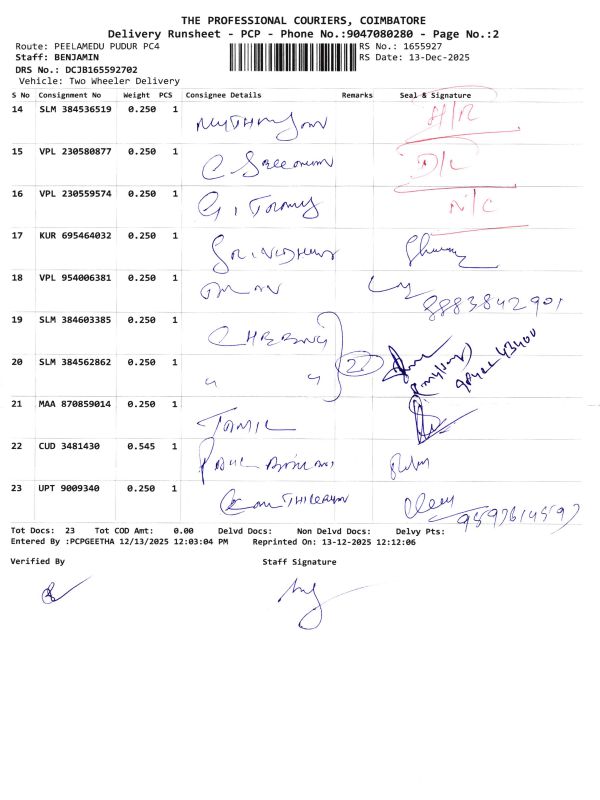 THE PROFESSIONAL COURIERS, COIMBATORE
Delivery Runsheet - PCP - Phone No.:9047080280 - Page No.:2
Route: PEELAMEDU PUDUR PC4 RS No.: 1655927
Staff: BENJAMIN RS Date: 13-Dec-2025
DRS No.: DCJB165592702
Vehicle: Two Wheeler Delivery
S No Consignment No Weight PCS Consignee Details Remarks Seal & Signature
14 SLM 384536519 0.250 1 H/R
15 VPL 230580877 0.250 1 D/L
16 VPL 230559574 0.250 1 N/C
17 KUR 695464032 0.250 1
18 VPL 954006381 0.250 1 8883842901
19 SLM 384603385 0.250 1
20 SLM 384562862 0.250 1 " "
21 MAA 870859014 0.250 1 TAMIL
22 CUD 3481430 0.545 1
23 UPT 9009340 0.250 1
Tot Docs: 23 Tot COD Amt: 0.00 Delvd Docs: Non Delvd Docs: Delvy Pts:
Entered By :PCPGEETHA 12/13/2025 12:03:04 PM Reprinted On: 13-12-2025 12:12:06
Verified By Staff Signature